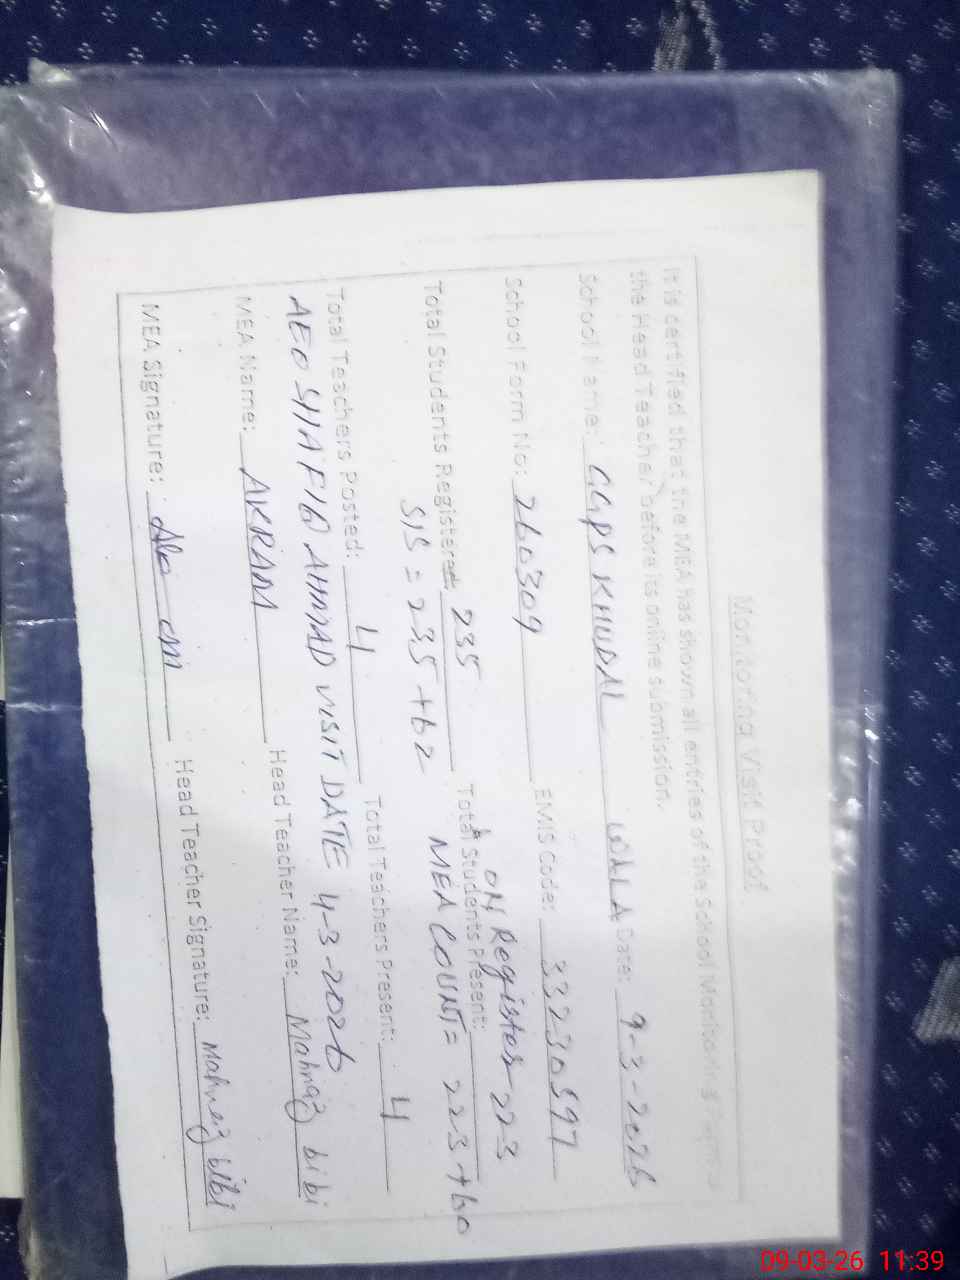 Monitoring Visit Proof
It is certified that the MEA has shown all entries of the School Monitoring Forms to
the Head Teacher before its online submission.
School Name: GGPS KHUDAL WALA Date: 9-3-2026
School Form No: 260309 EMIS Code: 33230597
Total Students Registered: 235 Total Students Present: ON Register-223
SIS = 235+62 MEA COUNT= 223+60
Total Teachers Posted: 4 Total Teachers Present: 4
AEO SHAFIQ AHMAD VISIT DATE 4-3-2026
MEA Name: AKRAM Head Teacher Name: Mahnaz bibi
MEA Signature: Head Teacher Signature: Mahnaz bibi
09-03-26 11:39